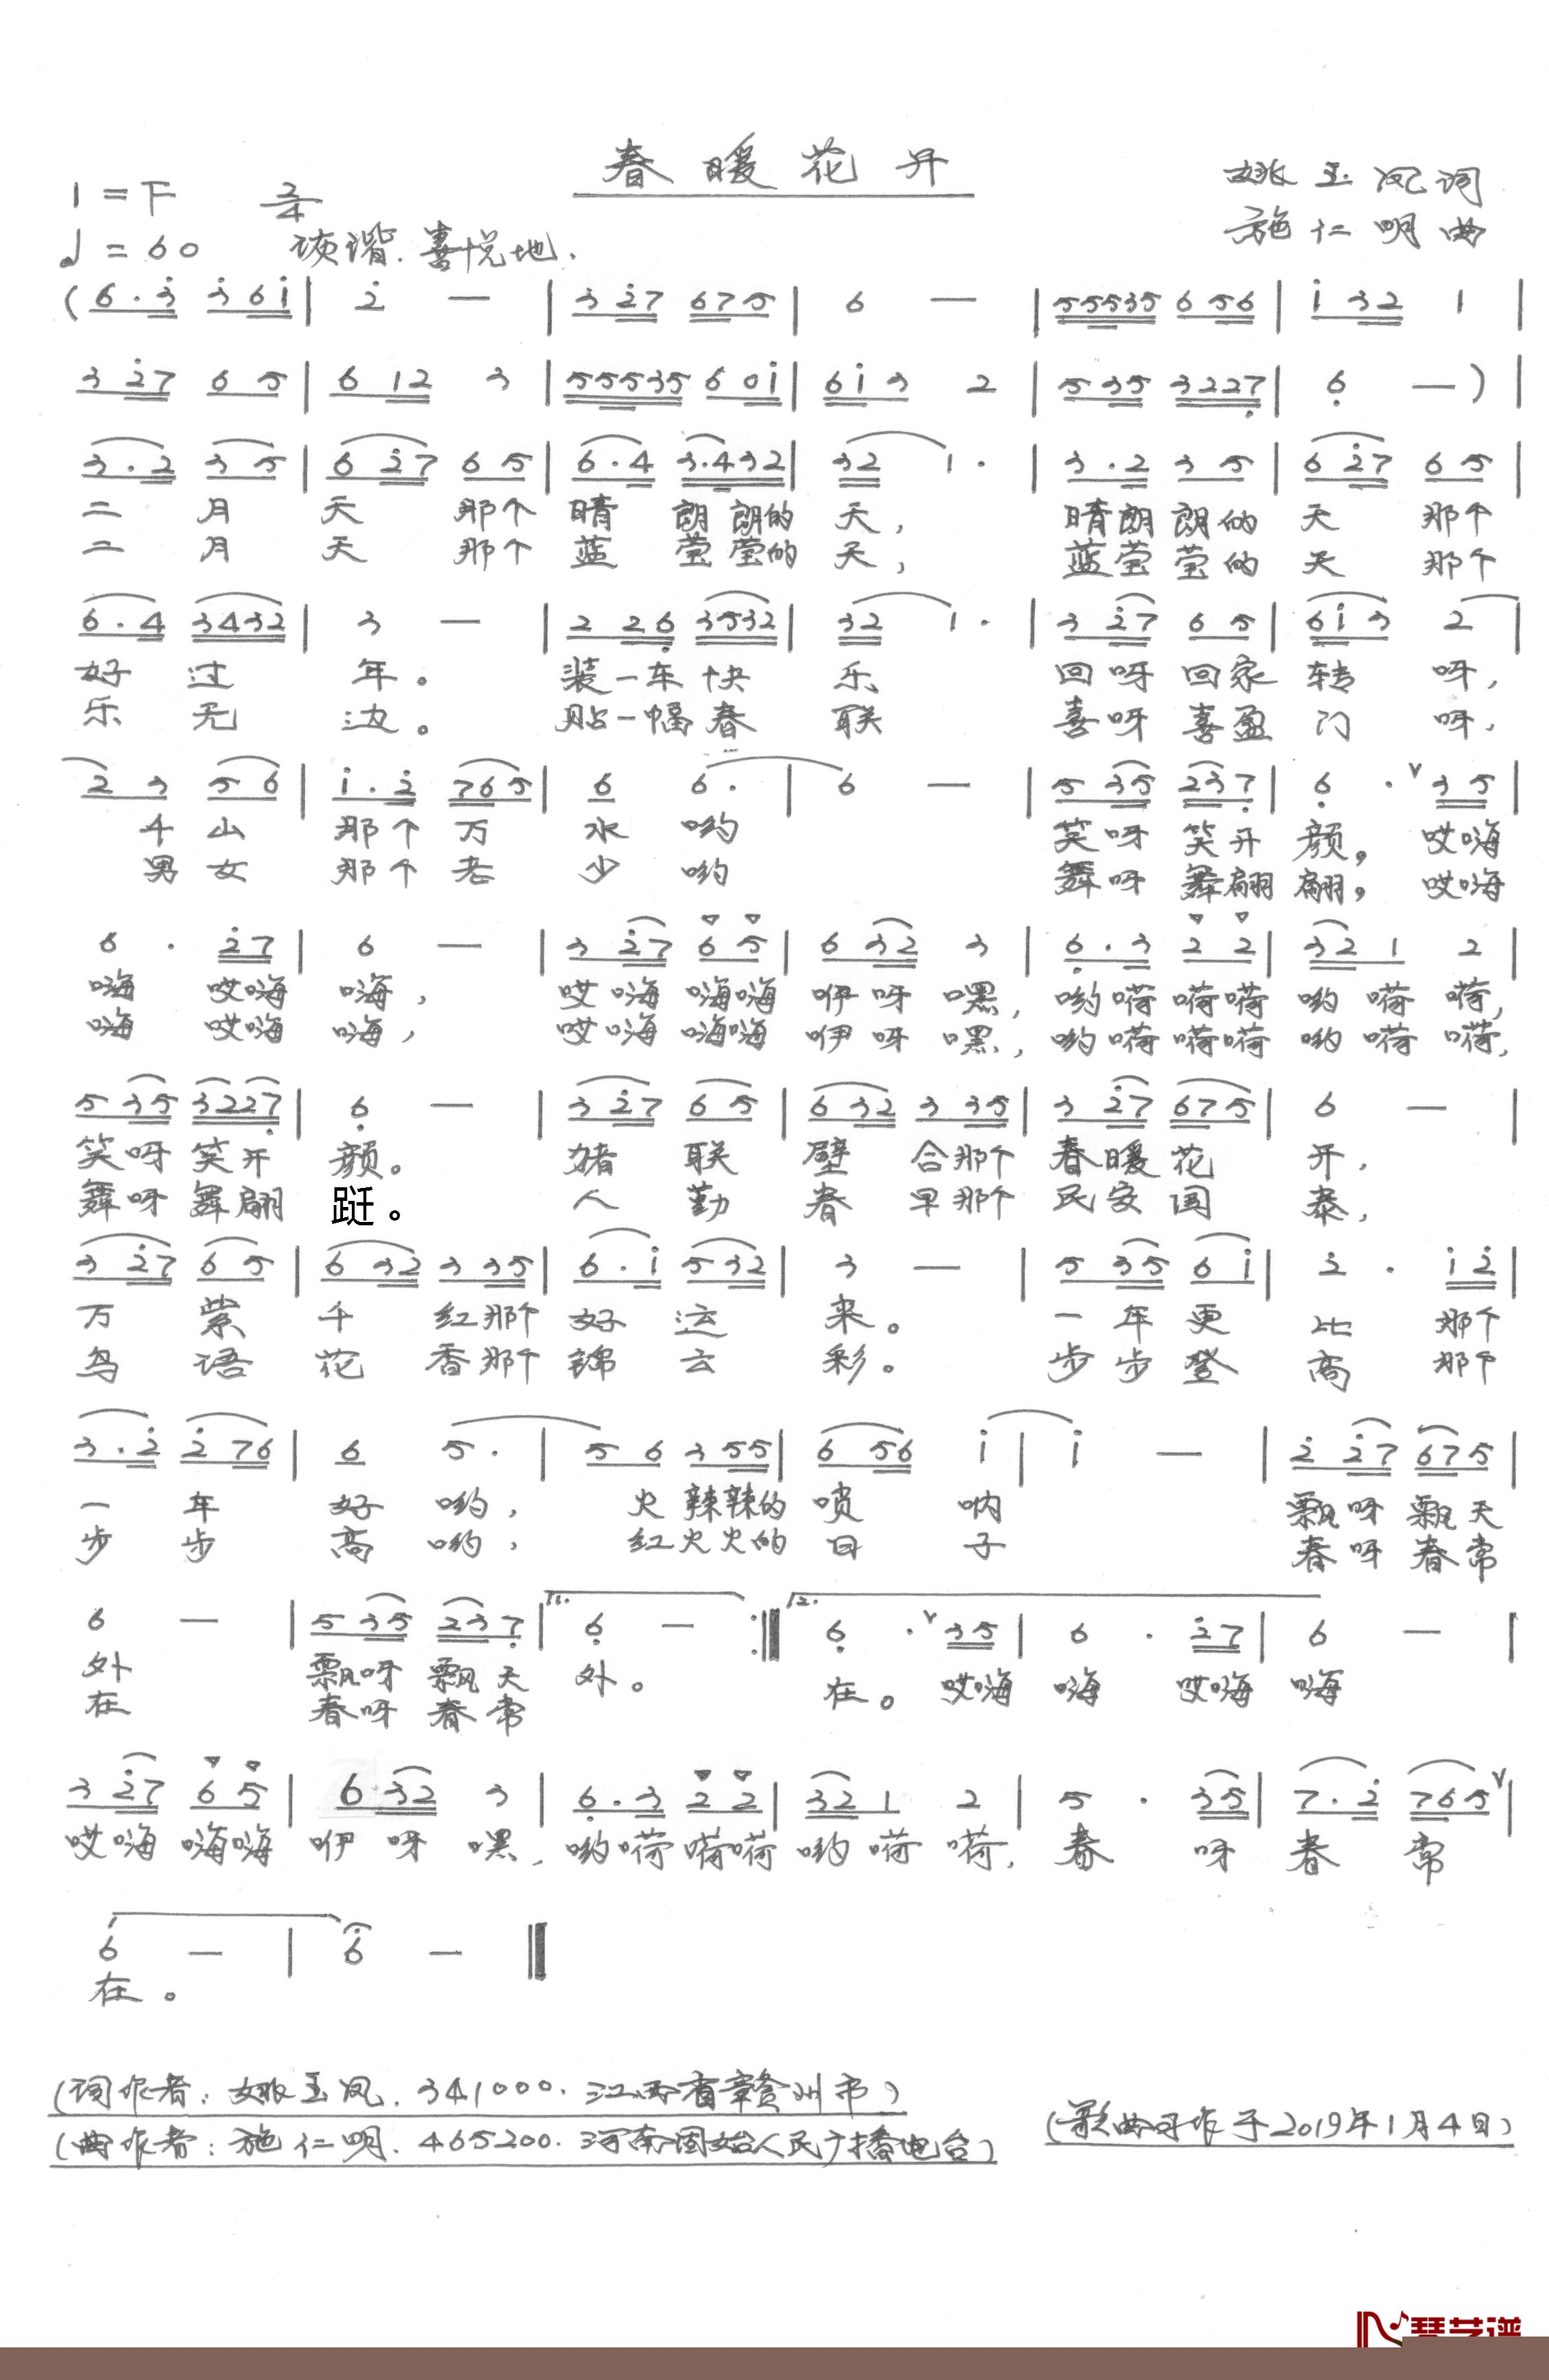 春暖花开
1=F 2/4
姚玉凤词
♩=60 诙谐.喜悦地.
施仁明曲
(6·3 361| 2 — |3 27 675| 6 — |55535 656|1 32 1 |
3 27 6 5|6 12 3 |55535 6 01|61 3 2 |5 35 3227| 6 —)|
3·2 3 5|6 27 6 5|6·4 3·432|32 1· |3·2 3 5|6 27 6 5|
二 月 天 那个 晴 朗朗的 天, 晴朗朗的 天 那个
二 月 天 那个 蓝 莹莹的 天, 蓝莹莹的 天 那个
6·4 3432| 3 — |2 26 3532|32 1· |3 27 6 5|61 3 2 |
好 过 年。 装一车快 乐 回呀回家 转 呀,
乐 无 边。 贴一幅春 联 喜呀喜盈 门 呀,
2 3 5 6|1·2 765|6 6· | 6 — |5 35 237| 6 ·∨35|
千山 那个万 水 哟 笑呀笑开 颜。 哎嗨
男女 那个老 少 哟 舞呀舞翩 翩, 哎嗨
6 · 27| 6 — |3 27 6 5|6 32 3 |6·3 2 2|32 1 2 |
嗨 哎嗨 嗨, 哎嗨嗨嗨 咿呀 嘿, 哟嗬嗬嗬 哟嗬 嗬,
嗨 哎嗨 嗨, 哎嗨嗨嗨 咿呀 嘿, 哟嗬嗬嗬 哟嗬 嗬,
5 35 3227| 6 — |3 27 6 5|6 32 3 35|3 27 675| 6 — |
笑呀笑开 颜。 猪 联 壁 合那个 春暖花 开,
舞呀舞翩 跹。 人 勤 春 早那个 民安国 泰,
3 27 6 5|6 32 3 35|6·1 532| 3 — |5 35 6 1| 2 · 12|
万 紫 千 红那个 好 运 来。 一年更 比 那个
鸟 语 花 香那个 锦 云 彩。 步步登 高 那个
3·2 2 76|6 5· |5 6 3 55|6 56 1 | 1 — |2 27 675|
一 年 好 哟, 火 辣辣的 唢 呐 飘呀飘天
步 步 高 哟, 红火火的 日 子 春呀春常
6 — |5 35 237|1. 6 — :‖2. 6 ·∨35| 6 · 27| 6 — |
外 飘呀飘天 外。 在。 哎嗨 嗨 哎嗨 嗨
在 春呀春常
3 27 6 5|6 32 3 |6·3 2 2|32 1 2 |5 · 35|7·2 765∨|
哎嗨嗨嗨 咿呀 嘿, 哟嗬嗬嗬 哟嗬 嗬, 春 呀 春 常
6 — | 6 — ‖
在。
(词作者:姚玉凤. 341000. 江西省赣州市)
(曲作者:施仁明. 465200. 河南固始人民广播电台)
(歌曲写作于2019年1月4日)
琴艺谱